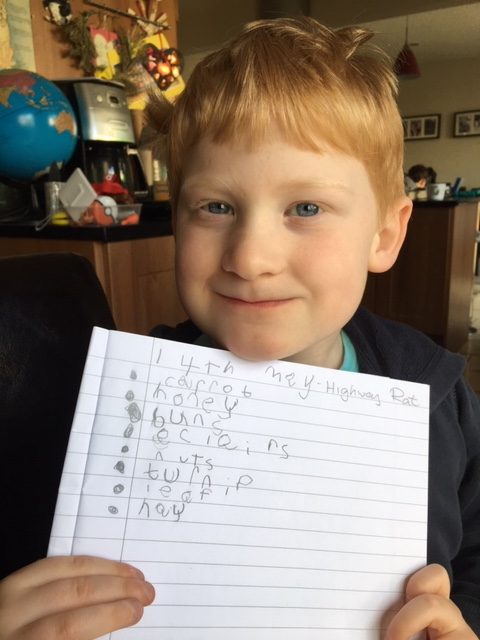 14th may - Highway Rat
carrot
honey
buns
ecleirs
nuts
turnip
leaf
hay